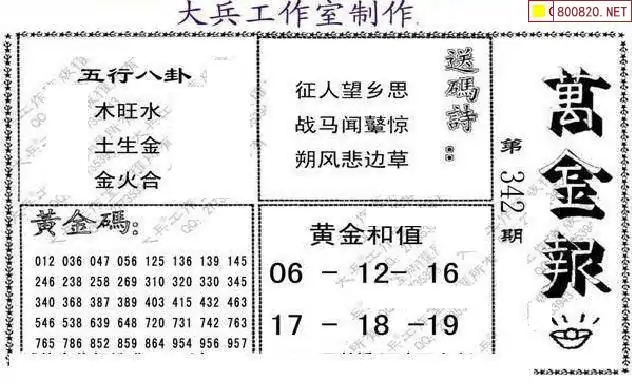 大兵工作室制作
800820.NET
五行八卦
木旺水
土生金
金火合
送碼詩:
征人望乡思
战马闻鼙惊
朔风悲边草
萬金報
第342期
黃金碼:
012 036 047 056 125 136 139 145
246 238 258 269 310 320 330 345
340 368 387 389 403 415 432 463
546 538 639 648 720 731 742 763
765 786 852 859 864 954 956 957
黄金和值
06 - 12- 16
17 - 18 -19